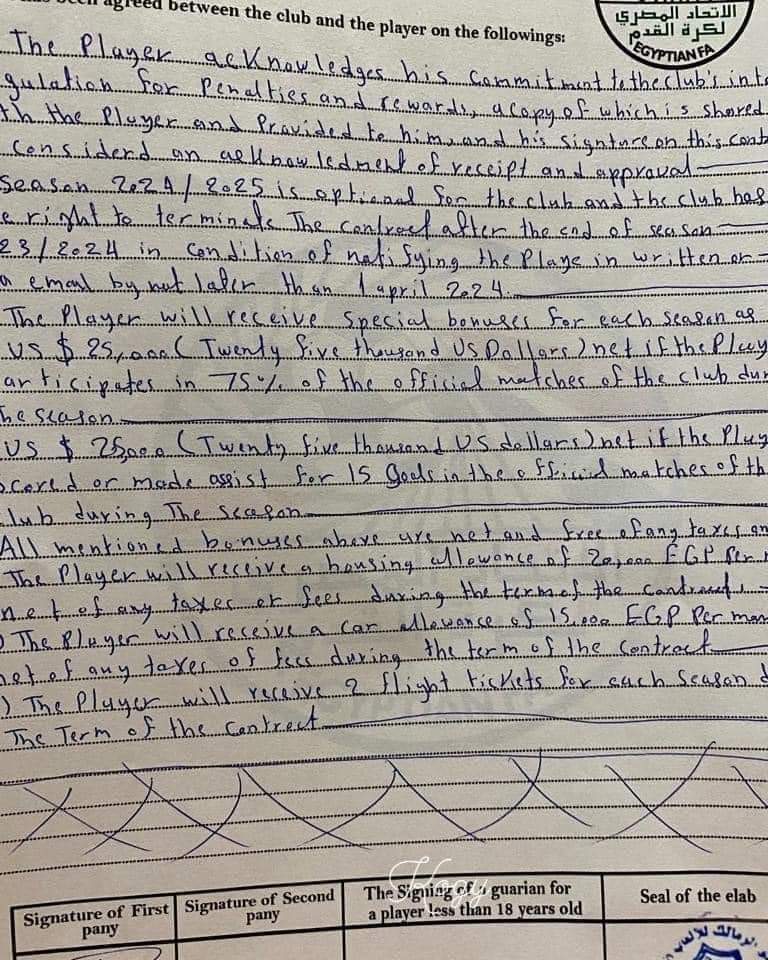 agreed between the club and the player on the followings:
الاتحاد المصري
لكرة القدم
EGYPTIAN FA
The Player acknowledges his Commitment to the club's inte
gulation for Penalties and rewards, a copy of which is shared
th the Player and Provided to him, and his signture on this cont
considerd an acknowledment of receipt and approval
Season 2024/2025 is optional for the club and the club has
e right to terminate The contract after the end of season
23/2024 in condition of notifying the Playe in written or
emeal by not later than 1 april 2024.
The Player will receive special bonuses for each season as
US $ 25,000 (Twenty five thousand US Dollars) net if the Play
articipates in 75% of the official matches of the club dur
he season
US $ 25000 (Twenty five thousand US dollars) net if the Play
cored or made assist for 15 goals in the official matches of th
lub during The season
All mentioned bonuses above are net and free of any taxes an
The Player will receive a housing allowance of 20,000 EGP Per
net of any taxes or fees during the term of the contract.
) The Player will receive a car allowance of 15.000 EGP Per mon
net of any taxes of fees during the term of the contract
) The Player will receive 2 flight tickets for each season d
The Term of the contract
Kogy
Signature of First pany
Signature of Second pany
The Signing of a guarian for
a player less than 18 years old
Seal of the elab